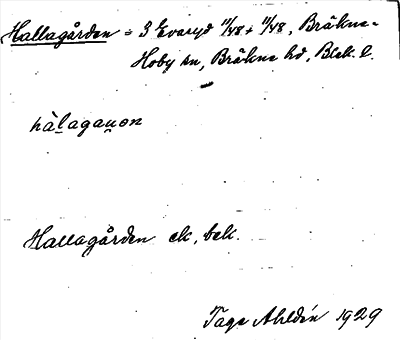 Hallagården = 3 Evaryd 11/48 + 11/48, Bräkne-
Hoby sn, Bräkne hd, Blek. l.
hàlagaụơn
Hallagården ek, bek.
Tage Ahldén 1929